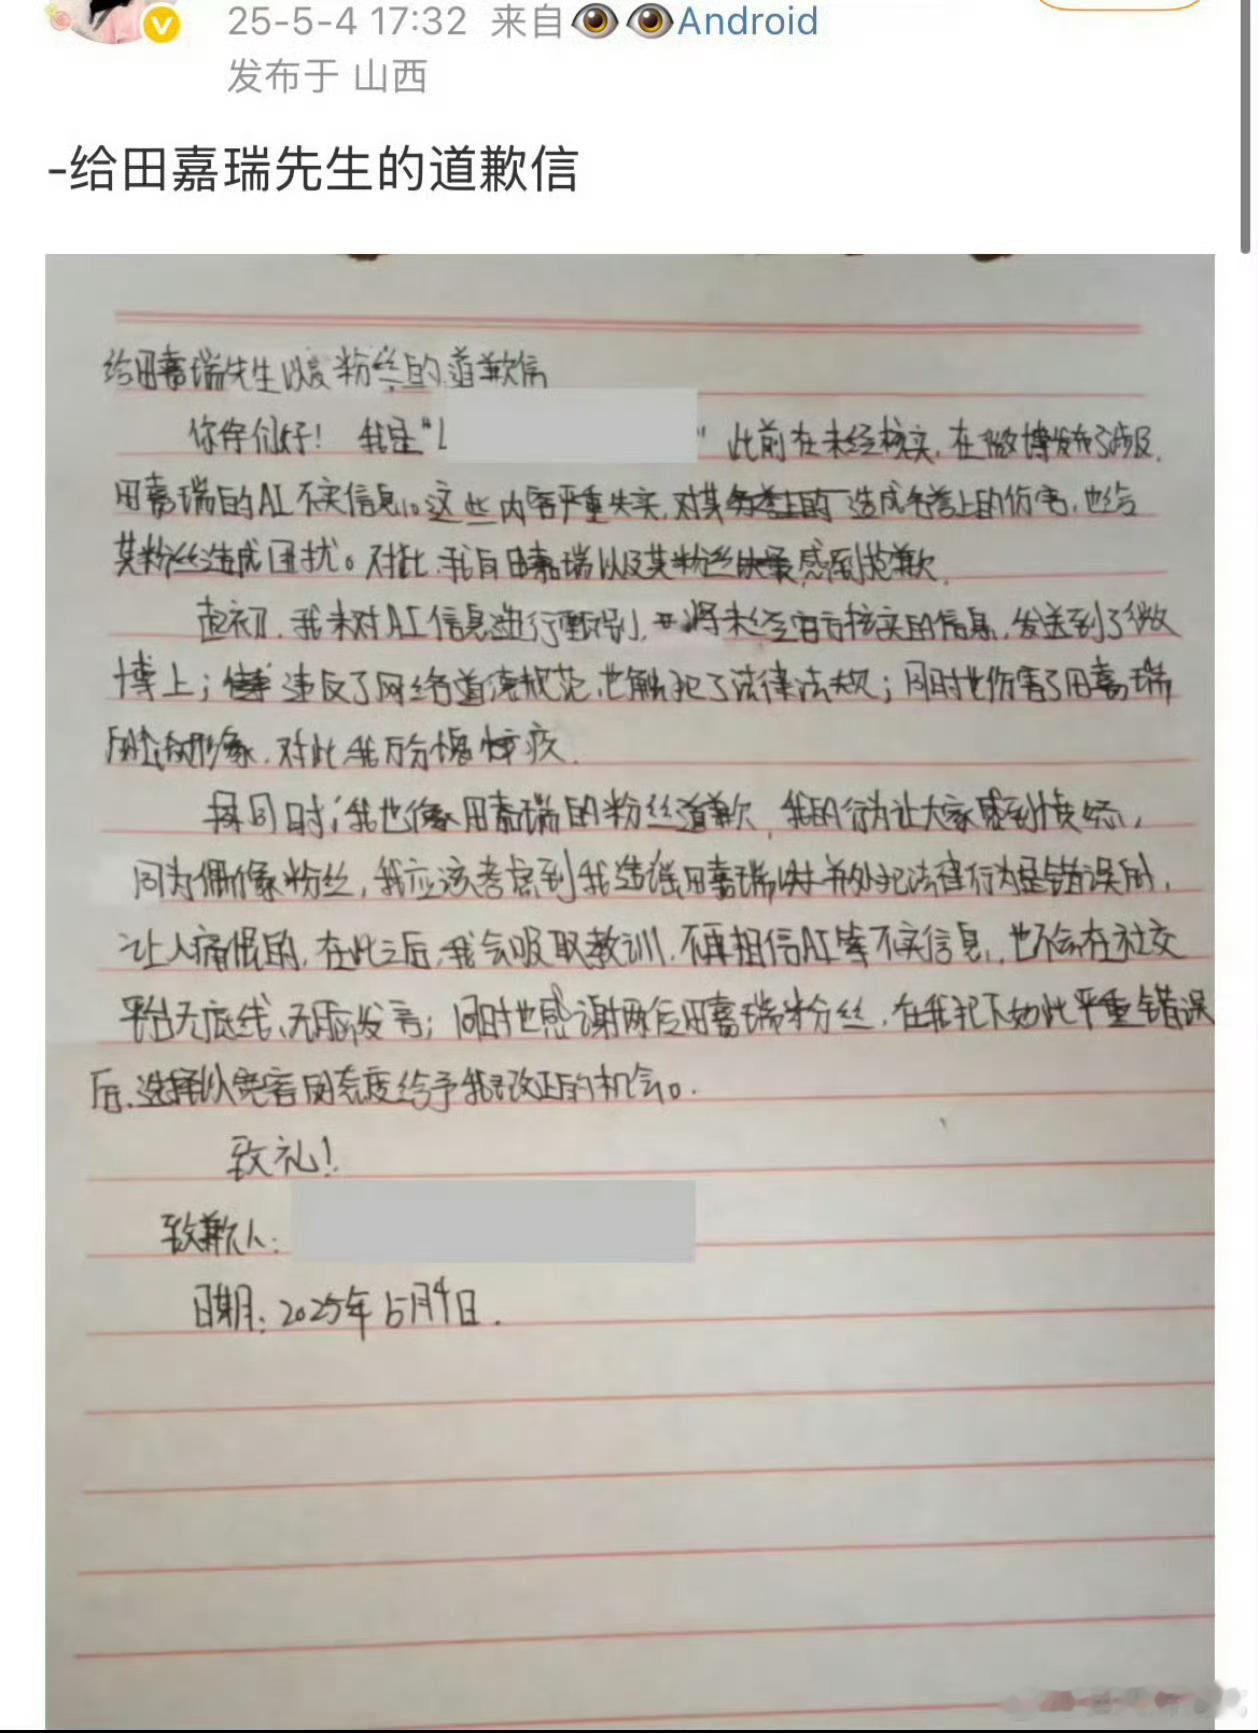 25-5-4 17:32 来自👁👁Android
发布于 山西
-给田嘉瑞先生的道歉信
给田嘉瑞先生以及粉丝的道歉信
你们好! 我是“L ” 此前在未经核实,在微博发布了涉及
田嘉瑞的AI不实信息。这些内容严重失实,对其造成名誉上的伤害,也给
其粉丝造成困扰。对此,我向田嘉瑞以及其粉丝感到抱歉.
起初,我未对AI信息进行甄别,将未经官方核实的信息,发送到了微
博上;违反了网络道德规范,也触犯了法律法规;同时也伤害了田嘉瑞
的形象,对此我万分愧疚.
同时,我也像田嘉瑞的粉丝道歉,我的行为让大家感到愤怒,
同为偶像粉丝,我应该考虑到我造谣田嘉瑞法律行为是错误的,
让人痛恨的,在此之后,我会吸取教训,不再相信AI等不实信息,也不会在社交
平台无底线、无脑发言;同时也感谢田嘉瑞粉丝,在我犯下如此严重错误
后,选择以宽容的态度给予我改正的机会。
致礼!
致歉人:
日期:2025年5月4日.